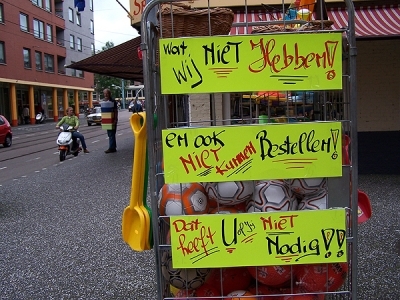 Wat Wij NIET Hebben!
en ook NIET Kunnen Bestellen!
Dat heeft U d'r NIET Nodig!!